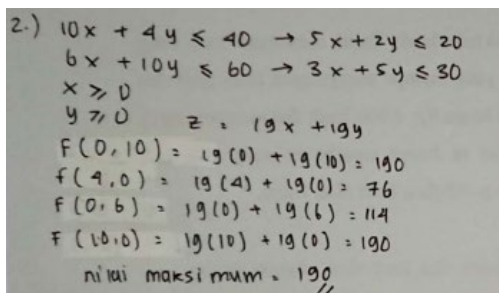 2.) 10x + 4y ≤ 40 → 5x + 2y ≤ 20
6x + 10y ≤ 60 → 3x + 5y ≤ 30
x ≥ 0
y ≥ 0 z = 19x + 19y
F(0,10) = 19(0) + 19(10) = 190
f(4,0) = 19(4) + 19(0) = 76
F(0,6) = 19(0) + 19(6) = 114
F(10,0) = 19(10) + 19(0) = 190
nilai maksimum = 190